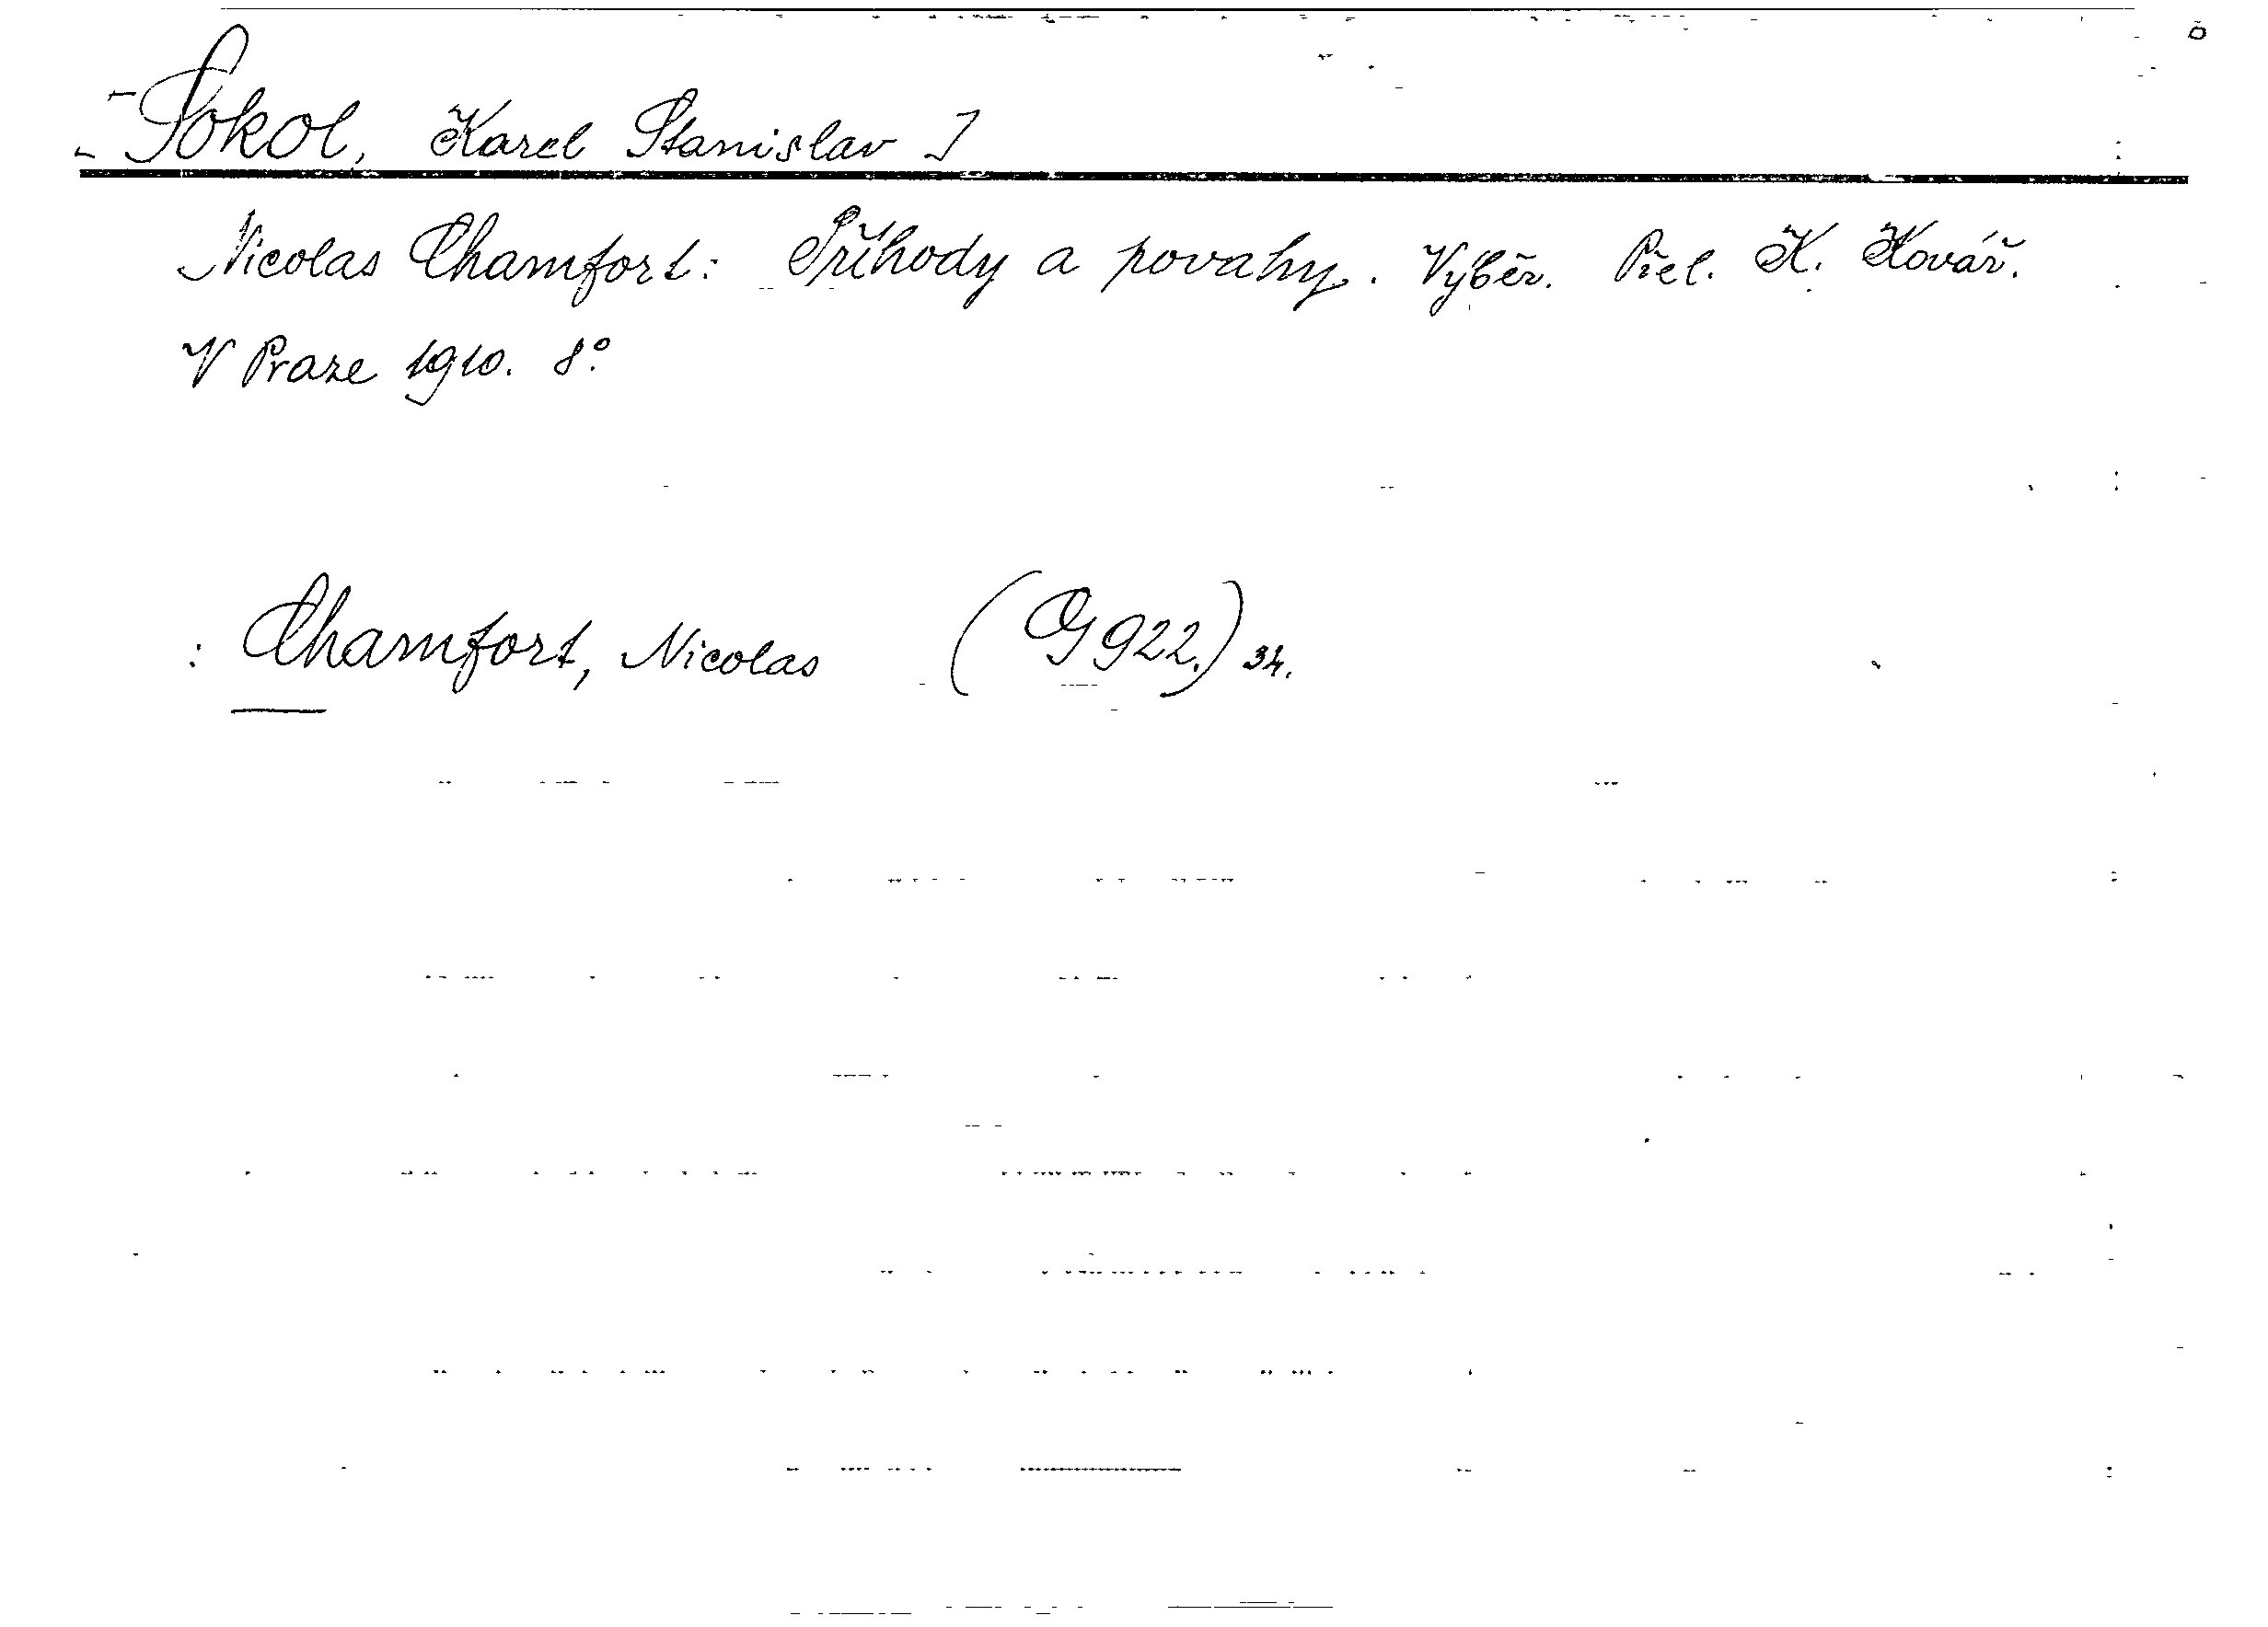 [Sokol, Karel Stanislav]
Nicolas Chamfort: Příhody a povahy. Výběr. Přel. K. Kovář.
V Praze 1910. 8°.
: Chamfort, Nicolas (G 922.) 34.